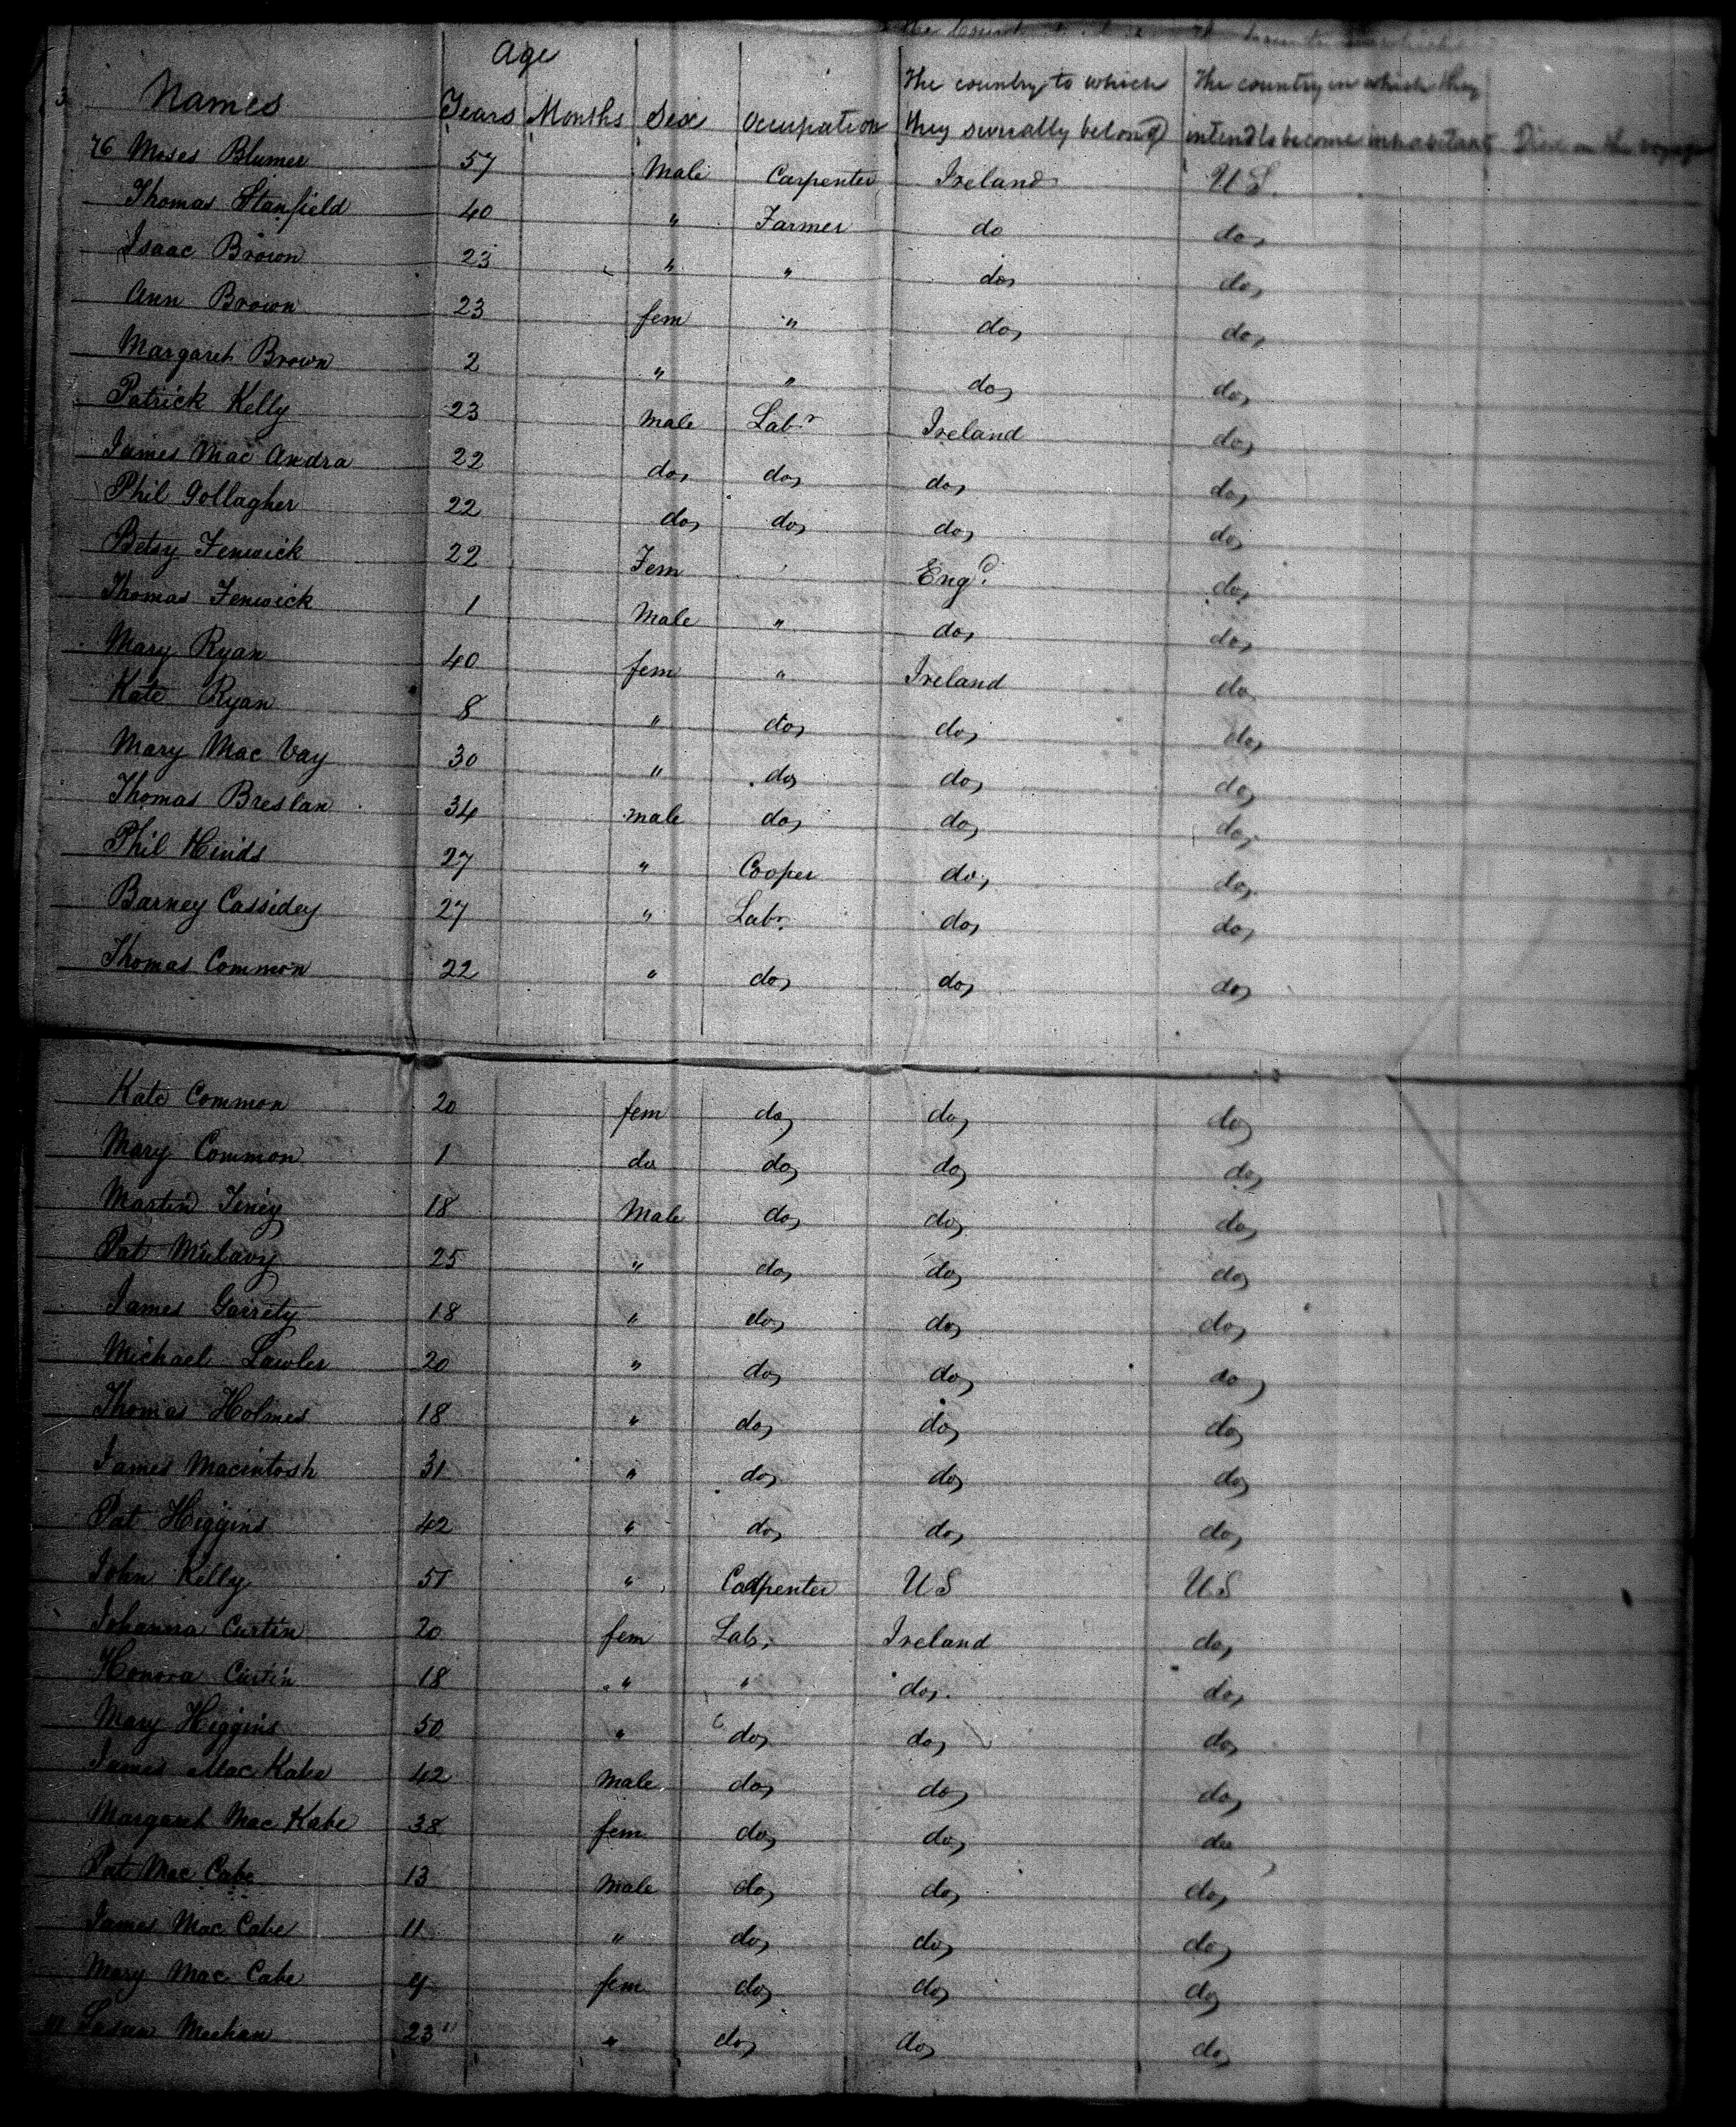 Age
Names Years Months Sex Occupation The country to which they severally belong The country in which they intend to become inhabitants Died on the voyage
76 Moses Blumer 57 Male Carpenter Ireland U S.
Thomas Stanfield 40 " Farmer do do
Isaac Brown 23 " " do do
Ann Brown 23 fem " do do
Margaret Brown 2 " " do do
Patrick Kelly 23 Male Labr Ireland do
James Mac Andra 22 do do do do
Phil Gollagher 22 do do do do
Betsy Fenwick 22 Fem Engd. do
Thomas Fenwick 1 Male " do do
Mary Ryan 40 fem " Ireland do
Kate Ryan 8 " do do do
Mary Mac Vay 30 " do do do
Thomas Breslan 34 male do do do
Phil Hinds 27 " Cooper do do
Barney Cassidey 27 " Labr. do do
Thomas Common 22 " do do do
Kate Common 20 fem do do do
Mary Common 1 do do do do
Martin 18 Male do do do
Pat Mulavy 25 " do do do
James Garrety 18 " do do do
Michael Lawler 20 " do do do
Thomas Holmes 18 " do do do
James Macintosh 31 " do do do
Pat Higgins 42 " do do do
John Kelly 51 " Carpenter U S U S
Johanna Curtin 20 fem Labr Ireland do
Honora Curtin 18 " " do do
Mary Higgins 50 " do do do
James Mac Kabe 42 Male do do do
Margaret Mac Kabe 38 fem do do do
Pat Mac Cabe 13 Male do do do
James Mac Cabe 11 " do do do
Mary Mac Cabe 9 fem do do do
Susan Meehan 23 " do do do